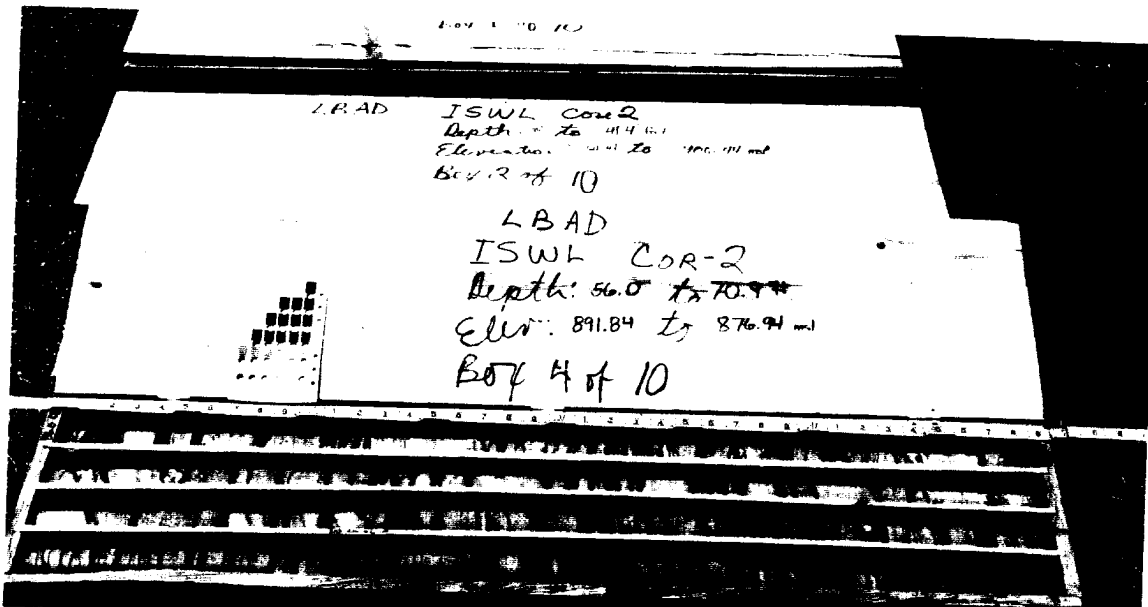 Box 10
LBAD ISWL Core 2
Depth to
Elevation to msl
Box 2 of 10
LBAD
ISWL COR-2
Depth: 56.0 to 70.9
Elev: 891.84 to 876.94 msl
Box 4 of 10